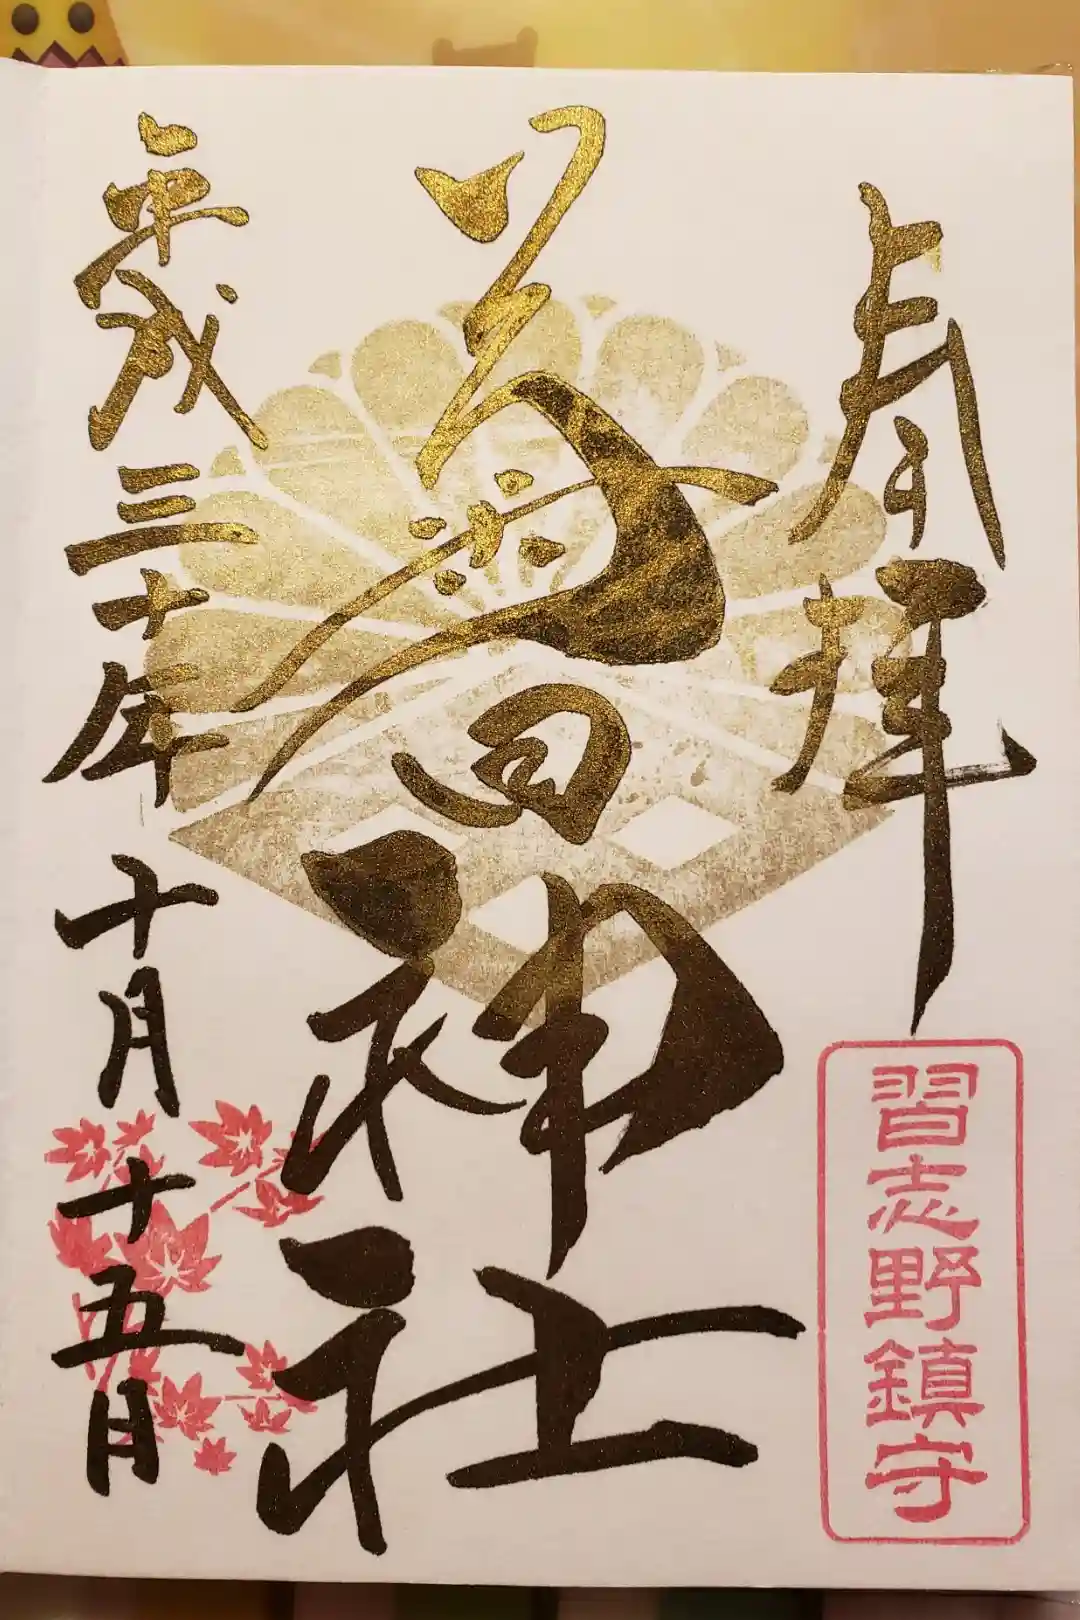 奉拝
習志野鎮守
菊田神社
平成三十年十月十五日